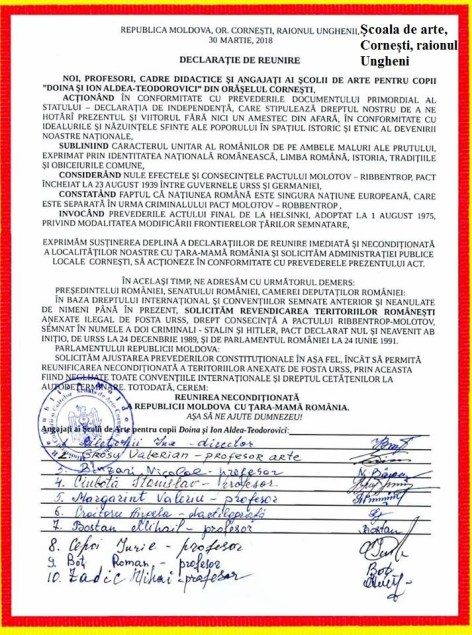 REPUBLICA MOLDOVA, OR. CORNEȘTI, RAIONUL UNGHENII,
30 MARTIE, 2018
Școala de arte,
Cornești, raionul
Ungheni
DECLARAȚIE DE REUNIRE
NOI, PROFESORI, CADRE DIDACTICE ȘI ANGAJAȚI AI ȘCOLII DE ARTE PENTRU COPII
"DOINA ȘI ION ALDEA-TEODOROVICI" DIN ORĂȘELUL CORNEȘTI,
ACȚIONÂND ÎN CONFORMITATE CU PREVEDERILE DOCUMENTULUI PRIMORDIAL AL
STATULUI – DECLARAȚIA DE INDEPENDENȚĂ, CARE STIPULEAZĂ DREPTUL NOSTRU DE A NE
HOTĂRÎ PREZENTUL ȘI VIITORUL FĂRĂ NICI UN AMESTEC DIN AFARĂ, ÎN CONFORMITATE CU
IDEALURILE ȘI NĂZUINȚELE SFINTE ALE POPORULUI ÎN SPAȚIUL ISTORIC ȘI ETNIC AL DEVENIRII
NOASTRE NAȚIONALE,
SUBLINIIND CARACTERUL UNITAR AL ROMÂNILOR DE PE AMBELE MALURI ALE PRUTULUI,
EXPRIMAT PRIN IDENTITATEA NAȚIONALĂ ROMÂNEASCĂ, LIMBA ROMÂNĂ, ISTORIA, TRADIȚIILE
ȘI OBICEIURILE COMUNE,
CONSIDERÂND NULE EFECTELE ȘI CONSECINȚELE PACTULUI MOLOTOV – RIBBENTROP, PACT
ÎNCHEIAT LA 23 AUGUST 1939 ÎNTRE GUVERNELE URSS ȘI GERMANIEI,
CONSTATÂND FAPTUL CĂ NAȚIUNEA ROMÂNĂ ESTE SINGURA NAȚIUNE EUROPEANĂ, CARE
ESTE SEPARATĂ ÎN URMA CRIMINALULUI PACT MOLOTOV – ROBBENTROP ,
INVOCÂND PREVEDERILE ACTULUI FINAL DE LA HELSINKI, ADOPTAT LA 1 AUGUST 1975,
PRIVIND MODALITATEA MODIFICĂRII FRONTIERELOR ȚĂRILOR SEMNATARE,
EXPRIMĂM SUSȚINEREA DEPLINĂ A DECLARAȚIILOR DE REUNIRE IMEDIATĂ ȘI NECONDIȚIONATĂ
A LOCALITĂȚILOR NOASTRE CU ȚARA-MAMĂ ROMÂNIA ȘI SOLICITĂM ADMINISTRAȚIEI PUBLICE
LOCALE CORNEȘTI, SĂ ACȚIONEZE ÎN CONFORMITATE CU PREVEDERILE PREZENTULUI ACT.
ÎN ACELAȘI TIMP, NE ADRESĂM CU URMĂTORUL DEMERS:
PREȘEDINTELUI ROMÂNIEI, SENATULUI ROMÂNIEI, CAMEREI DEPUTAȚILOR ROMÂNIEI:
ÎN BAZA DREPTULUI INTERNAȚIONAL ȘI CONVENȚIILOR SEMNATE ANTERIOR ȘI NEANULATE
DE NIMENI PÂNĂ ÎN PREZENT, SOLICITĂM REVENDICAREA TERITORIILOR ROMÂNEȘTI
ANEXATE ILEGAL DE FOSTA URSS, DREPT CONSECINȚĂ A PACTULUI RIBBENTROP-MOLOTOV,
SEMNAT ÎN NUMELE A DOI CRIMINALI - STALIN ȘI HITLER, PACT DECLARAT NUL ȘI NEAVENIT AB
INIȚIO, DE URSS LA 24 DECENBRIE 1989, ȘI DE PARLAMENTUL ROMÂNIEI LA 24 IUNIE 1991.
PARLAMENTULUI REPUBLICII MOLDOVA:
SOLICITĂM AJUSTAREA PREVEDERILOR CONSTITUȚIONALE ÎN AȘA FEL, ÎNCÂT SĂ PERMITĂ
REUNIFICAREA NECONDIȚIONATĂ A TERITORIILOR ANEXATE DE FOSTA URSS, PRIN ACEASTA
FIIND NEGLIJATE TOATE CONVENȚIILE INTERNAȚIONALE ȘI DREPTUL CETĂȚENILOR LA
AUTODETERMINARE. TOTODATĂ, CEREM:
REUNIREA NECONDIȚIONATĂ
A REPUBLICII MOLDOVA CU ȚARA-MAMĂ ROMÂNIA.
AȘA SĂ NE AJUTE DUMNEZEU!
Angajați ai Școlii de Arte pentru Copii Doina și Ion Aldea-Teodorovici:
1. Ina - director
2. Grosu Valerian - profesor arte
3. Nicolae - profesor
4. Ciubotă Stanislav - profesor
5. Margarint Valeriu - profesor
6. Croitoru Angela -
7. Bostan Mihail - profesor Bostan
8. Cepoi Iurie - profesor
9. Boț Roman, - profesor Boț
10. Zadic Mihai - profesor